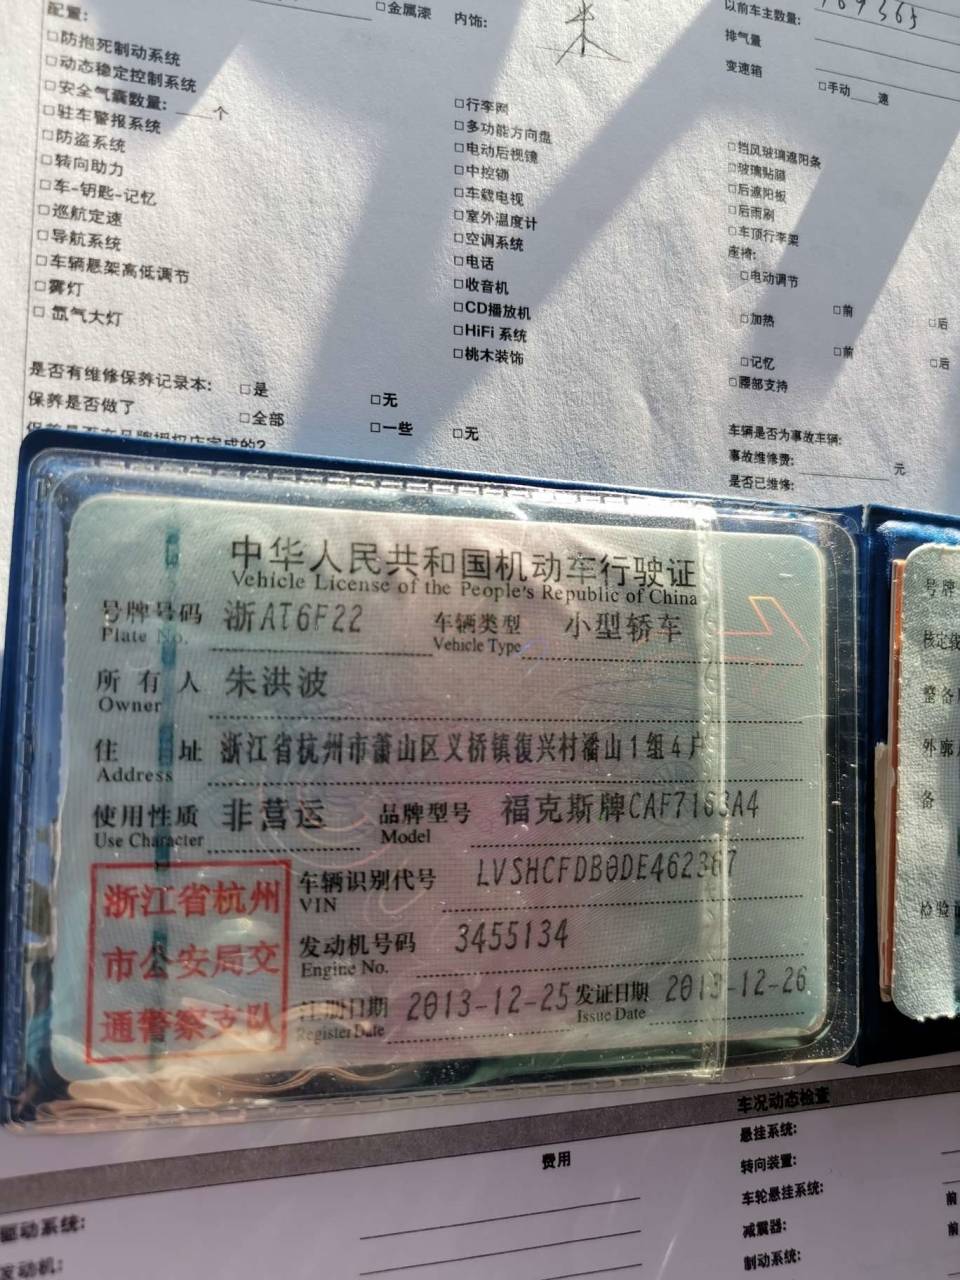 配置:
□金属漆
内饰:
以前车主数量:
排气量
变速箱
□手动 速
□防抱死制动系统
□动态稳定控制系统
□安全气囊数量: 个
□驻车警报系统
□防盗系统
□转向助力
□车-钥匙-记忆
□巡航定速
□导航系统
□车辆悬架高低调节
□雾灯
□氙气大灯
□行李网
□多功能方向盘
□电动后视镜
□中控锁
□车载电视
□室外温度计
□空调系统
□电话
□收音机
□CD播放机
□HiFi 系统
□桃木装饰
□挡风玻璃遮阳条
□玻璃贴膜
□后遮阳板
□后雨刷
□车顶行李架
座椅:
□电动调节
□加热 □前 □后
□记忆 □前 □后
□腰部支持
是否有维修保养记录本: □是 □无
保养是否做了 □全部 □一些 □无
车辆是否为事故车辆:
事故维修费: 元
是否已维修:
中华人民共和国机动车行驶证
Vehicle License of the People's Republic of China
号牌号码 浙AT6F22 车辆类型 小型轿车
Plate No. Vehicle Type
所有人 朱洪波
Owner
住址 浙江省杭州市萧山区义桥镇復兴村潘山1组4户
Address
使用性质 非营运 品牌型号 福克斯牌CAF7163A4
Use Character Model
车辆识别代号 LVSHCFDB0DE462367
VIN
发动机号码 3455134
Engine No.
注册日期 2013-12-25 发证日期 2013-12-26
Register Date Issue Date
浙江省杭州
市公安局交
通警察支队
号牌
核定载
整备
外廓
备
检验
车况动态检查
费用
悬挂系统:
转向装置:
车轮悬挂系统: 前
减震器: 前
制动系统:
驱动系统:
发动机: